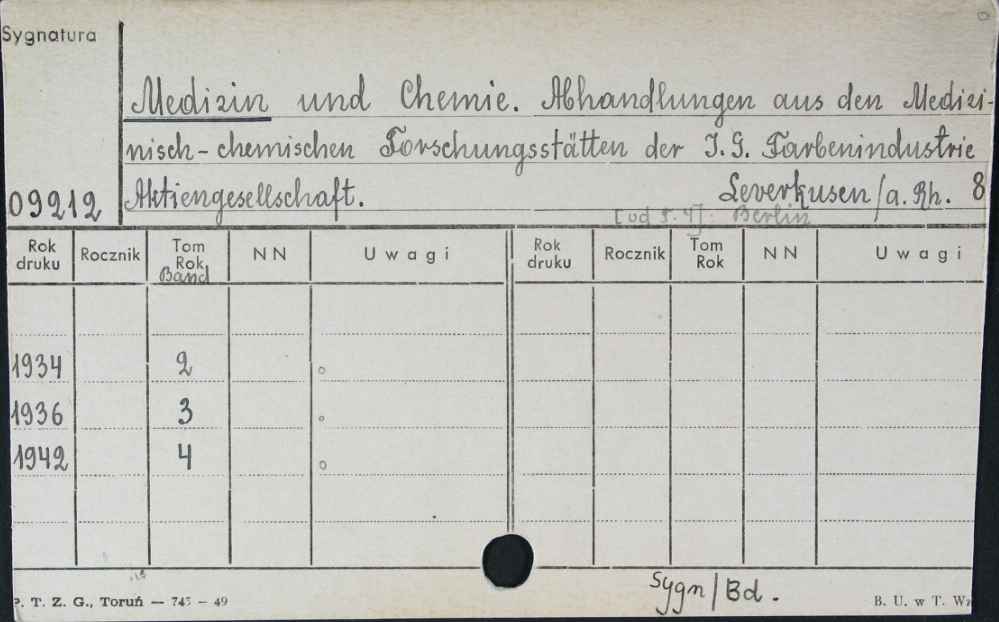 Sygnatura
Medizin und Chemie. Abhandlungen aus den Medizi-
nisch-chemischen Forschungsstätten der I.G. Farbenindustrie
09212 Aktiengesellschaft. Leverkusen/a. Rh. 8
[od t. 4]: Berlin
Rok druku Rocznik Tom Rok Band NN Uwagi Rok druku Rocznik Tom Rok NN Uwagi
1934 2
1936 3
1942 4
Sygn/Bd.
P. T. Z. G., Toruń — 745 — 49 B. U. w T. Wz